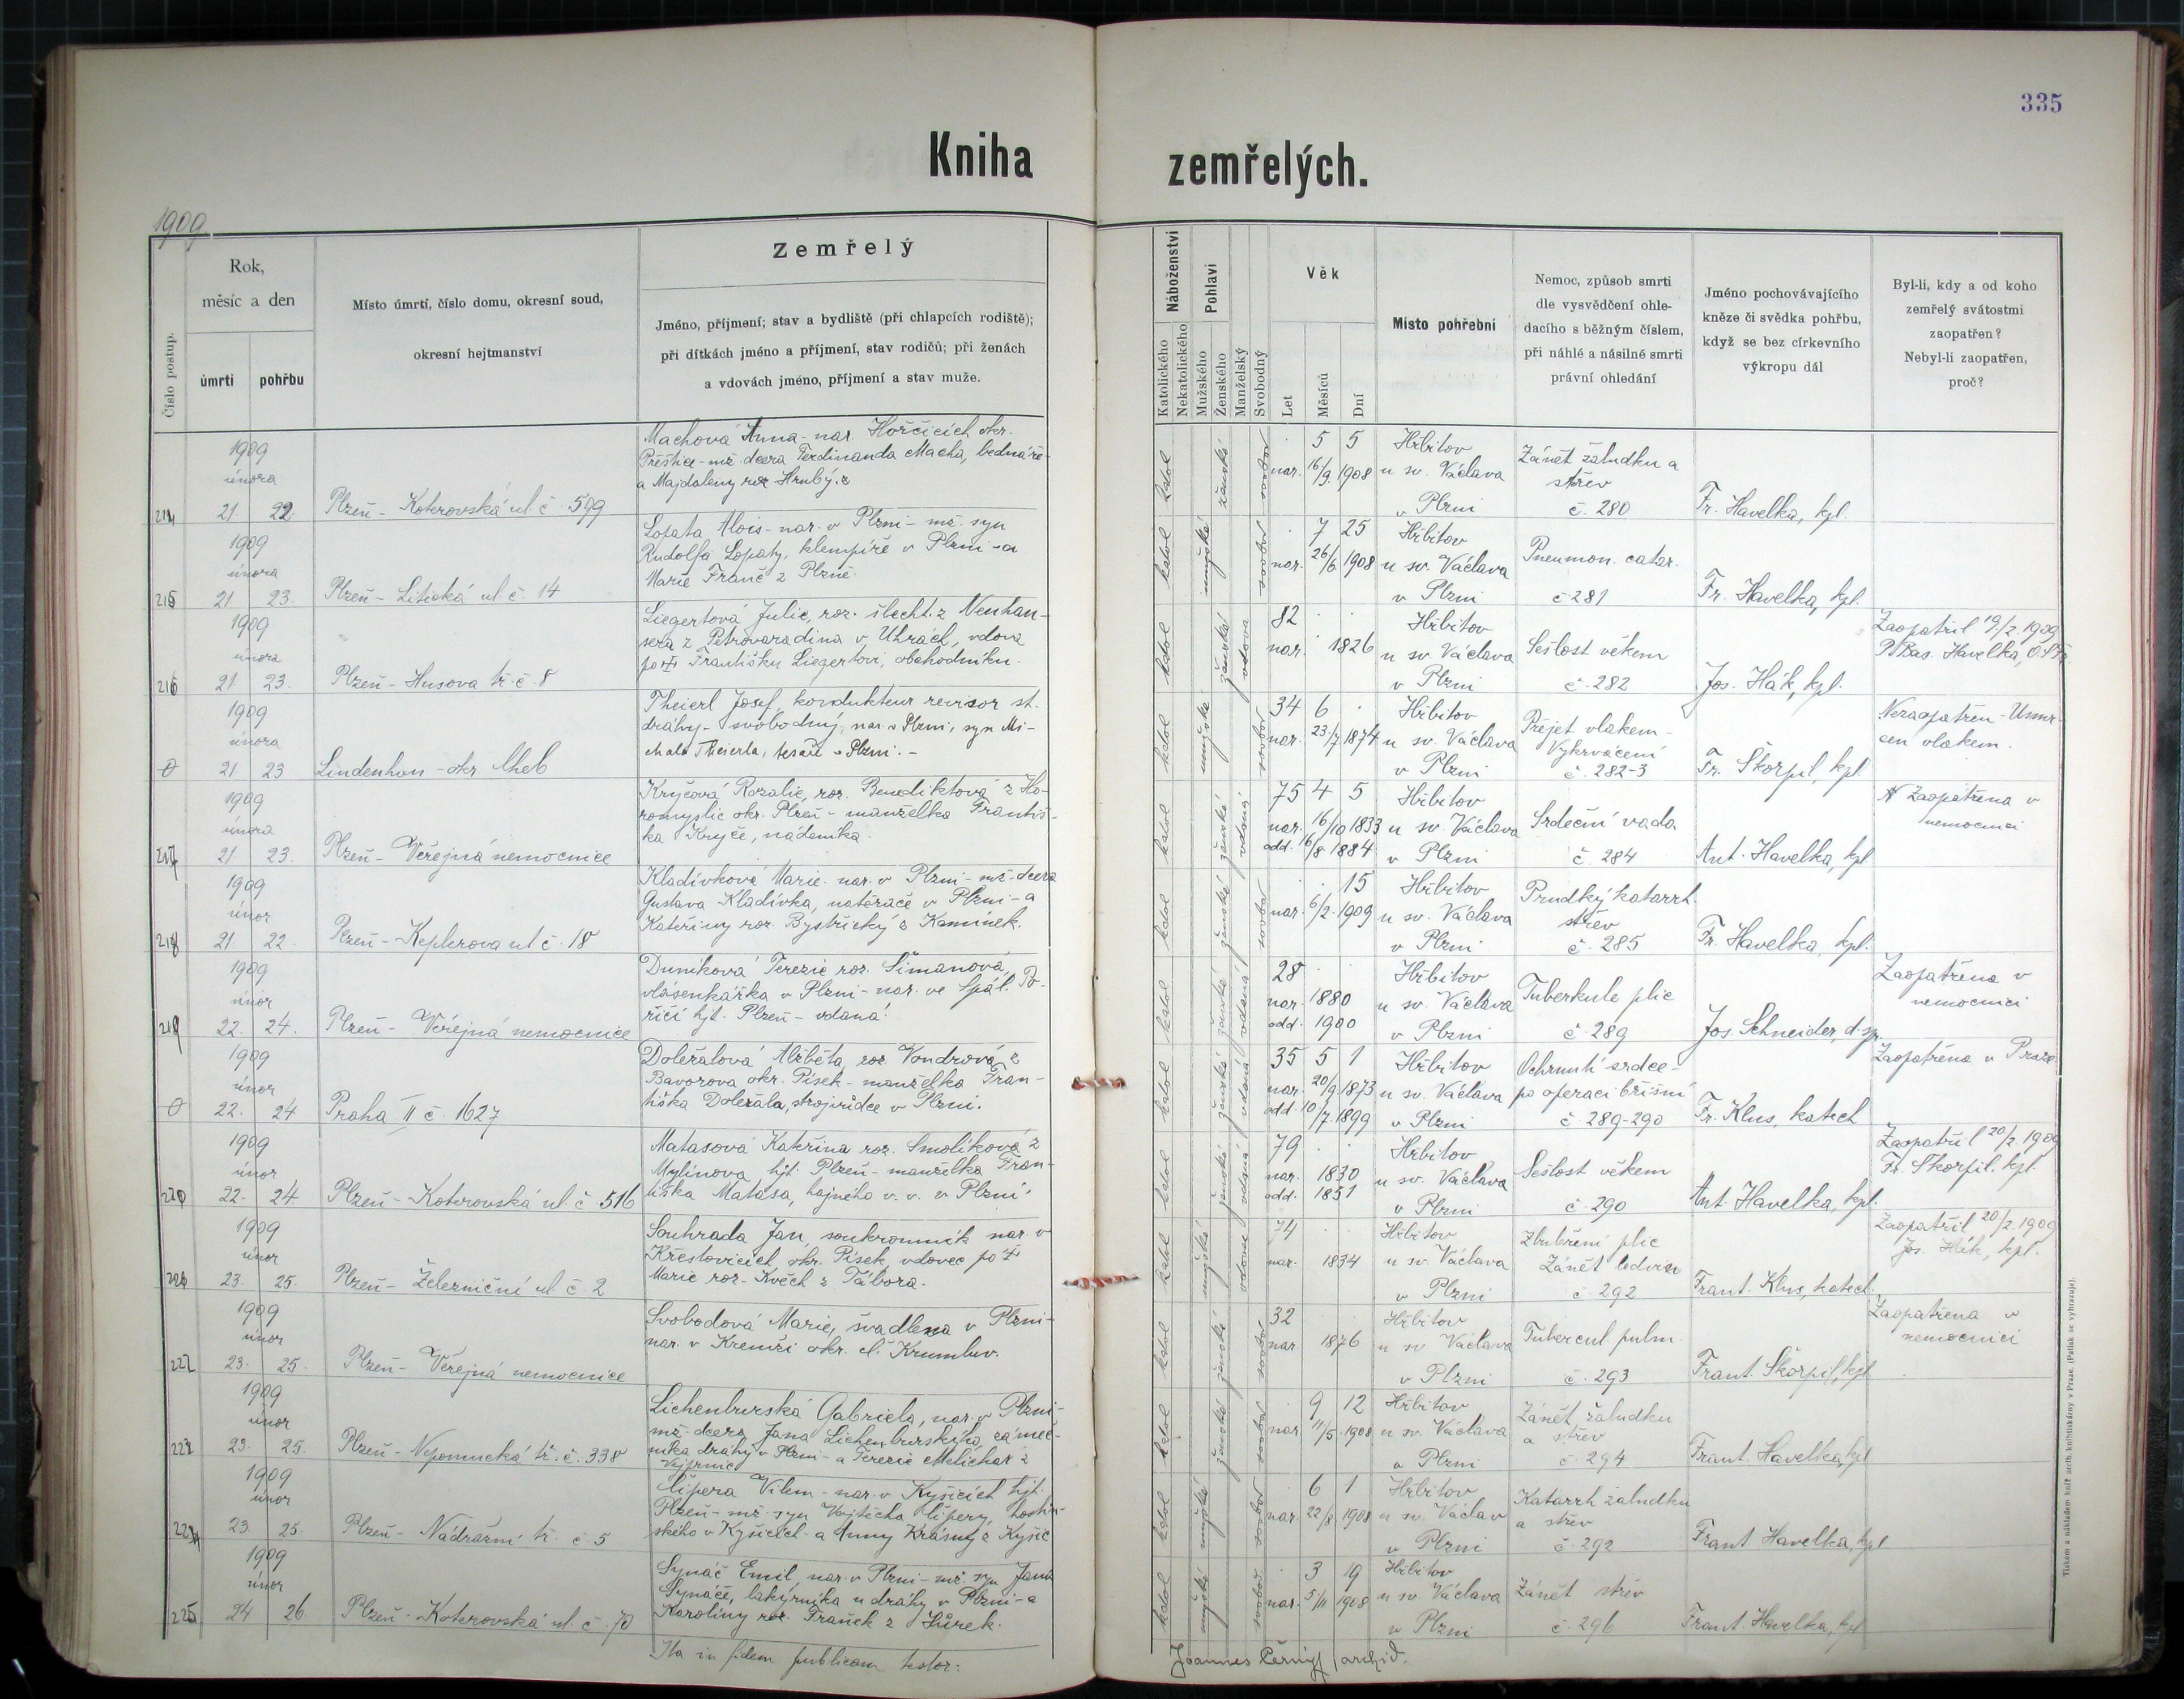 335
Kniha zemřelých.
1909
Číslo postup.
Rok,
měsíc a den
úmrtí
pohřbu
Místo úmrtí, číslo domu, okresní soud,
okresní hejtmanství
Zemřelý
Jméno, příjmení; stav a bydliště (při chlapcích rodiště);
při dítkách jméno a příjmení, stav rodičů; při ženách
a vdovách jméno, příjmení a stav muže.
Náboženství
Katolického
Nekatolického
Pohlaví
Mužského
Ženského
Manželský
Svobodný
Věk
Let
Měsíců
Dní
Místo pohřební
Nemoc, způsob smrti
dle vysvědčení ohle-
dacího s běžným číslem,
při náhlé a násilné smrti
právní ohledání
Jméno pochovávajícího
kněze či svědka pohřbu,
když se bez církevního
výkropu dál
Byl-li, kdy a od koho
zemřelý svátostmi
zaopatřen?
Nebyl-li zaopatřen,
proč?
1909
února
214 21. 22. Plzeň - Koterovská ul č. 599
Machová Anna - nar. Hořčicích okr.
Přeštice - mž. dcera Ferdinanda Macha, bednáře
a Majdaleny roz Hrubý.
katol ženské svobod
5 5
nar. 16/9. 1908
Hřbitov
u sv. Václava
v Plzni
Zánět žaludku a
střev
č. 280
Fr. Havelka, kpl.
1909
února
215 21 23. Plzeň - Litická ul č. 14
Lopata Alois - nar. v Plzni - mž. syn
Rudolfa Lopaty, klempíře v Plzni - a
Marie Franč z Plzně.
katol mužské svobod
7 25
nar. 26/6 1908
Hřbitov
u sv. Václava
v Plzni
Pneumon. catar.
č 281
Fr. Havelka, kpl.
1909
února
216 21 23. Plzeň - Husova tř. č. 8
Liegertová Julie, roz. šlecht. z Neuhau-
sera z Petrovaradina v Uhrách, vdova
po † Františku Liegertovi, obchodníku.
katol ženské vdova
82
nar. 1826
Hřbitov
u sv. Václava
v Plzni
Sešlost věkem
č. 282
Jos. Hák, kpl.
Zaopatřil 19/2. 1909
P. Bas. Havelka,
1909
února
0 21 23 Lindenhau - okr Cheb
Theierl Josef, kondukteur revisor st.
dráhy - svobodný, nar. v Plzni, syn Mi-
chala Theierla, tesaře v Plzni. -
katol mužské svobod
34 6
nar. 23/7. 1874
Hřbitov
u sv. Václava
v Plzni
Přejet vlakem -
Vykrvácení
č. 282-3
Fr. Škorpil, kpl
Nezaopatřen - Usmr-
cen vlakem.
1909
února
217 21 23. Plzeň - Veřejná nemocnice
Kryčová Rozalie, roz. Benediktová z Ho-
romyslic okr. Plzeň - manželka Františ-
ka Kryče, nádeníka.
katol ženské vdaná
75 4 5
nar. 16/10 1833
odd. 16/8 1884
Hřbitov
u sv. Václava
v Plzni
Srdeční vada
č. 284
Ant. Havelka, kpl
Zaopatřena v
nemocnici
1909
únor
218 21 22. Plzeň - Keplerova ul č. 18
Kladívková Marie. nar. v Plzni - mž - dcera
Gustava Kladívka, natěrače v Plzni - a
Kateřiny roz. Bystřický z Kamínek.
katol ženské svobod
15
nar. 6/2. 1909
Hřbitov
u sv. Václava
v Plzni
Prudký katarrh
střev
č. 285
Fr. Havelka, kpl.
1909
únor
219 22. 24. Plzeň - Veřejná nemocnice
Duníková Terezie roz. Šimanová,
vlásenkářka v Plzni - nar. ve Spál. Po-
říčí hjt. Plzeň - vdaná.
katol ženské vdaná
28
nar. 1880
odd. 1900
Hřbitov
u sv. Václava
v Plzni
Tuberkule plic
č. 289
Jos. Schneider, d. sp.
Zaopatřena v
nemocnici
1909
únor
0 22. 24 Praha II č. 1627
Doležalová Alžběta, roz. Vondrová, z
Bavorova okr. Písek - manželka Fran-
tiška Doležala, strojvůdce v Plzni.
katol ženské vdaná
35 5 1
nar. 20/9. 1873
odd. 10/7. 1899
Hřbitov
u sv. Václava
v Plzni
Ochrnutí srdce -
po operaci břišní
č. 289-290
Fr. Klus, katech
Zaopatřena v Praze
1909
únor
220 22. 24 Plzeň - Koterovská ul. č 516
Matasová Kateřina roz. Smolíková z
Mylínova hjt. Plzeň - manželka Fran-
tiška Matasa, hajného v. v. v Plzni.
katol ženské vdaná
79
nar. 1830
odd. 1851
Hřbitov
u sv. Václava
v Plzni
Sešlost věkem
č. 290
Ant. Havelka, kpl.
Zaopatřil 20/2. 1909
Fr. Škorpil. kpl.
1909
únor
221 23. 25. Plzeň - Železniční ul č 2
Souhrada Jan, soukromník nar. v
Křestovicích okr. Písek vdovec po †
Marie roz. Kvěch z Tábora.
katol mužské vdovec
74
nar. 1834
Hřbitov
u sv. Václava
v Plzni
Zbubření plic
Zánět ledvin
č. 292
Frant. Klus, katech.
Zaopatřil 20/2. 1909
Jos. Hák, kpl.
1909
únor
222 23. 25. Plzeň - Veřejná nemocnice
Svobodová Marie, švadlena v Plzni -
nar. v Kremži okr. č. Krumluv.
katol ženské svobod
32
nar 1876
Hřbitov
u sv. Václava
v Plzni
Tubercul pulm.
č. 293
Frant. Škorpil, kpl
Zaopatřena v
nemocnici
1909
únor
223 23. 25. Plzeň - Nepomucká tř. č. 338
Lichenburská Gabriela, nar. v Plzni -
mž. dcera Jana Lichenburského, zámeč-
níka dráhy v Plzni - a Terezie Melichar z
Vejprnic
katol ženské svobod
9 12
nar. 11/5. 1908
Hřbitov
u sv. Václava
v Plzni
Zánět žaludku
a střev
č. 294
Frant. Havelka, kpl
1909
únor
224 23. 25. Plzeň - Nádražní tř. č. 5
Čipera Vilem - nar. v Kyšicích hjt.
Plzeň - mž. syn Vojtěcha Čipery, hostin-
ského v Kyšicích - a Anny Krásný z Kyšic
katol mužské svobod
6 1
nar. 22/8. 1908
Hřbitov
u sv. Václav
v Plzni
Katarrh žaludku
a střev
č. 292
Frant Havelka, kpl
1909
únor
225 24 26. Plzeň - Koterovská ul. č. 70
Synáč Emil, nar. v Plzni - mž. syn Jana
Synáče, lakýrníka u dráhy v Plzni - a
Karoliny roz. Franěk z Hůrek.
katol mužské svobod
3 19
nar. 5/11 1908
Hřbitov
u sv. Václava
v Plzni
Zánět střev
č. 296
Frant. Havelka, kpl
Ita in fidem publicam testor:
Joannes Černý, archid.
Tiskem a nákladem kníž. arcib. knihtiskárny v Praze. (Patisk se vyhrazuje).